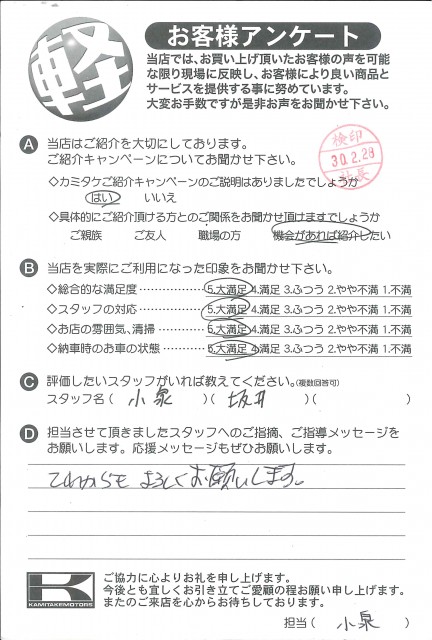 軽
お客様アンケート
当店では、お買い上げ頂いたお客様の声を可能
な限り現場に反映し、お客様により良い商品と
サービスを提供する事に努めています。
大変お手数ですが是非お声をお聞かせ下さい。
A 当店はご紹介を大切にしております。
ご紹介キャンペーンについてお聞かせ下さい。
検印
30.2.28
社長
◇カミタケご紹介キャンペーンのご説明はありましたでしょうか
はい いいえ
◇具体的にご紹介頂ける方とのご関係をお聞かせ頂けますでしょうか
ご親族 ご友人 職場の方 機会があれば紹介したい
B 当店を実際にご利用になった印象をお聞かせ下さい。
◇総合的な満足度 5.大満足 4.満足 3.ふつう 2.やや不満 1.不満
◇スタッフの対応 5.大満足 4.満足 3.ふつう 2.やや不満 1.不満
◇お店の雰囲気、清掃 5.大満足 4.満足 3.ふつう 2.やや不満 1.不満
◇納車時のお車の状態 5.大満足 4.満足 3.ふつう 2.やや不満 1.不満
C 評価したいスタッフがいれば教えてください。(複数回答可)
スタッフ名( 小泉 )( 坂井 )( )
D 担当させて頂きましたスタッフへのご指摘、ご指導メッセージを
お願いします。応援メッセージもぜひお願いします。
これからも よろしくお願いします。
K
KAMITAKEMOTORS
ご協力に心よりお礼を申し上げます。
今後とも宜しくお引き立てご愛顧の程お願い申し上げます。
またのご来店を心からお待ちしております。
担当( 小泉 )